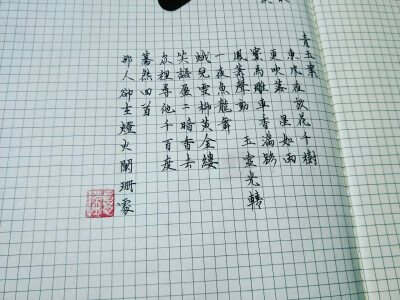 青玉案
東風夜放花千樹
更吹落 星如雨
寶馬雕車香滿路
鳳簫聲動 玉壺光轉
一夜魚龍舞
蛾兒雪柳黃金縷
笑語盈々暗香去
衆裡尋他千百度
驀然回首
那人卻在燈火闌珊處